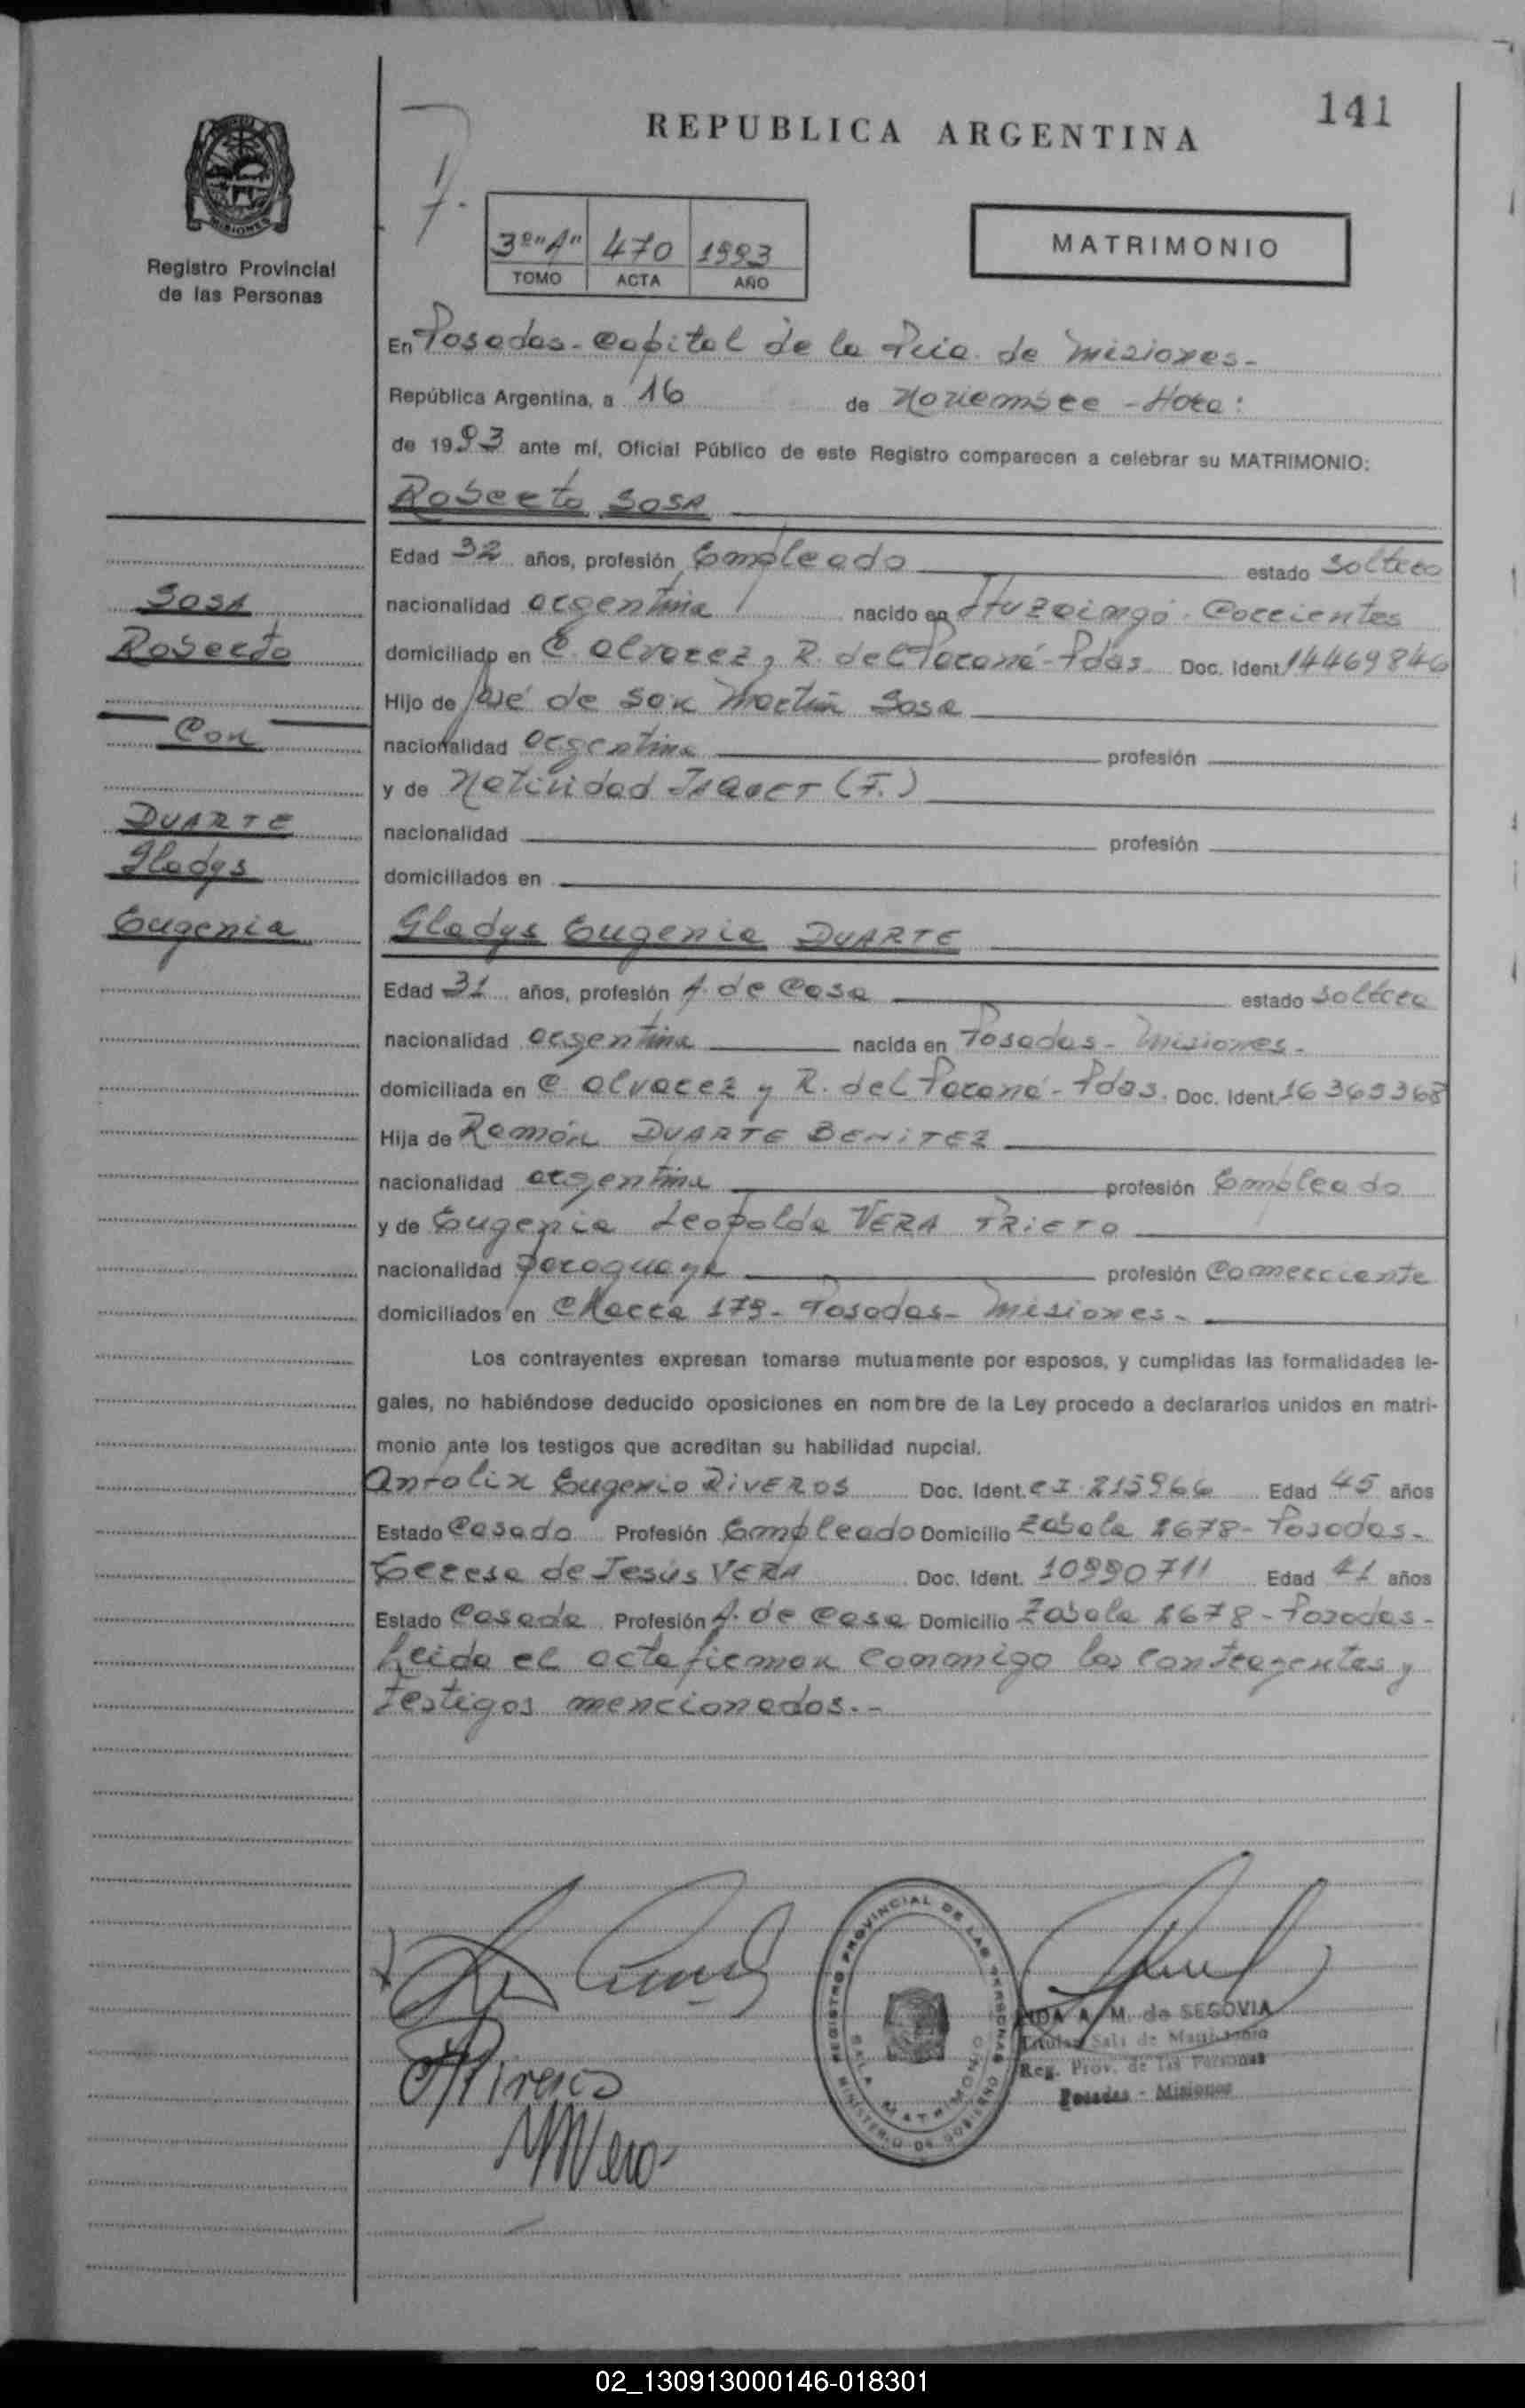 141
REPUBLICA ARGENTINA
MISIONES
Registro Provincial
de las Personas
3º "A" 470 1993
TOMO ACTA AÑO
MATRIMONIO
En Posadas - Capital de la Pcia. de Misiones -
República Argentina, a 16 de Noviembre - Hora:
de 1993 ante mí, Oficial Público de este Registro comparecen a celebrar su MATRIMONIO:
Roberto SOSA
Edad 32 años, profesión Empleado estado soltero
nacionalidad argentina nacido en Ituzaingó - Corrientes
domiciliado en C. Alvarez y R. del Paraná - Pdas. Doc. Ident. 14469846
Hijo de José de San Martín Sosa
nacionalidad argentina profesión
y de Natividad (F.)
nacionalidad profesión
domiciliados en
SOSA
Roberto
Con
DUARTE
Gladys
Eugenia
Gladys Eugenia DUARTE
Edad 31 años, profesión A. de Casa estado soltera
nacionalidad argentina nacida en Posadas - Misiones -
domiciliada en C. Alvarez y R. del Paraná - Pdas. Doc. Ident. 16365368
Hija de Ramón DUARTE BENITEZ
nacionalidad argentina profesión Empleado
y de Eugenia Leopolda VERA PRIETO
nacionalidad paraguaya profesión Comerciante
domiciliados en Chacra 179 - Posadas - Misiones -
Los contrayentes expresan tomarse mutuamente por esposos, y cumplidas las formalidades le-
gales, no habiéndose deducido oposiciones en nombre de la Ley procedo a declararlos unidos en matri-
monio ante los testigos que acreditan su habilidad nupcial.
Antolin Eugenio RIVEROS Doc. Ident. CI 215966 Edad 45 años
Estado Casado Profesión Empleado Domicilio Zabala 1678 - Posadas -
Teresa de Jesús VERA Doc. Ident. 10990711 Edad 41 años
Estado Casada Profesión A. de Casa Domicilio Zabala 1678 - Posadas -
Leida el acta firman conmigo los contrayentes y
testigos mencionados. -
REGISTRO PROVINCIAL DE LAS PERSONAS
MINISTERIO DE GOBIERNO
SALA MATRIMONIO
A. M. de SEGOVIA
Titular Sala de Matrimonio
Reg. Prov. de las Personas
Posadas - Misiones
02_130913000146-018301